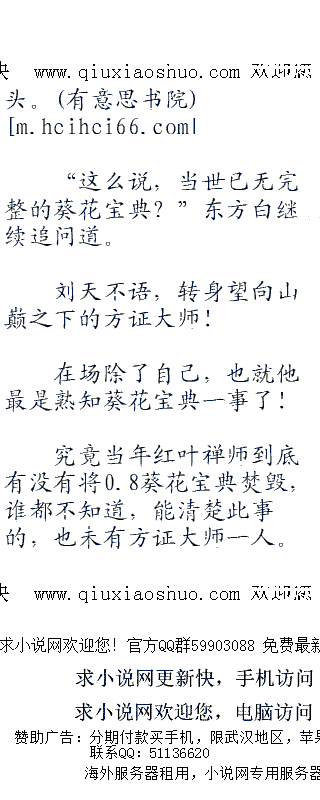 快 www.qiuxiaoshuo.com 欢迎您
头。(有意思书院)
[m.hcihci66.com]
“这么说，当世已无完
整的葵花宝典？”东方白继
续追问道。
刘天不语，转身望向山
巅之下的方证大师！
在场除了自己，也就他
最是熟知葵花宝典一事了！
究竟当年红叶禅师到底
有没有将0.8葵花宝典焚毁，
谁都不知道，能清楚此事
的，也未有方证大师一人。
快 www.qiuxiaoshuo.com 欢迎您
求小说网欢迎您！官方QQ群59903088 免费最新
求小说网更新快，手机访问
求小说网欢迎您，电脑访问
赞助广告：分期付款买手机，限武汉地区，苹果
联系QQ：51136620
海外服务器租用，小说网专用服务器